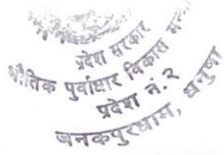 प्रदेश सरकार
भौतिक पुर्वाधार विकास
प्रदेश नं. २
जनकपुरधाम, धनुषा